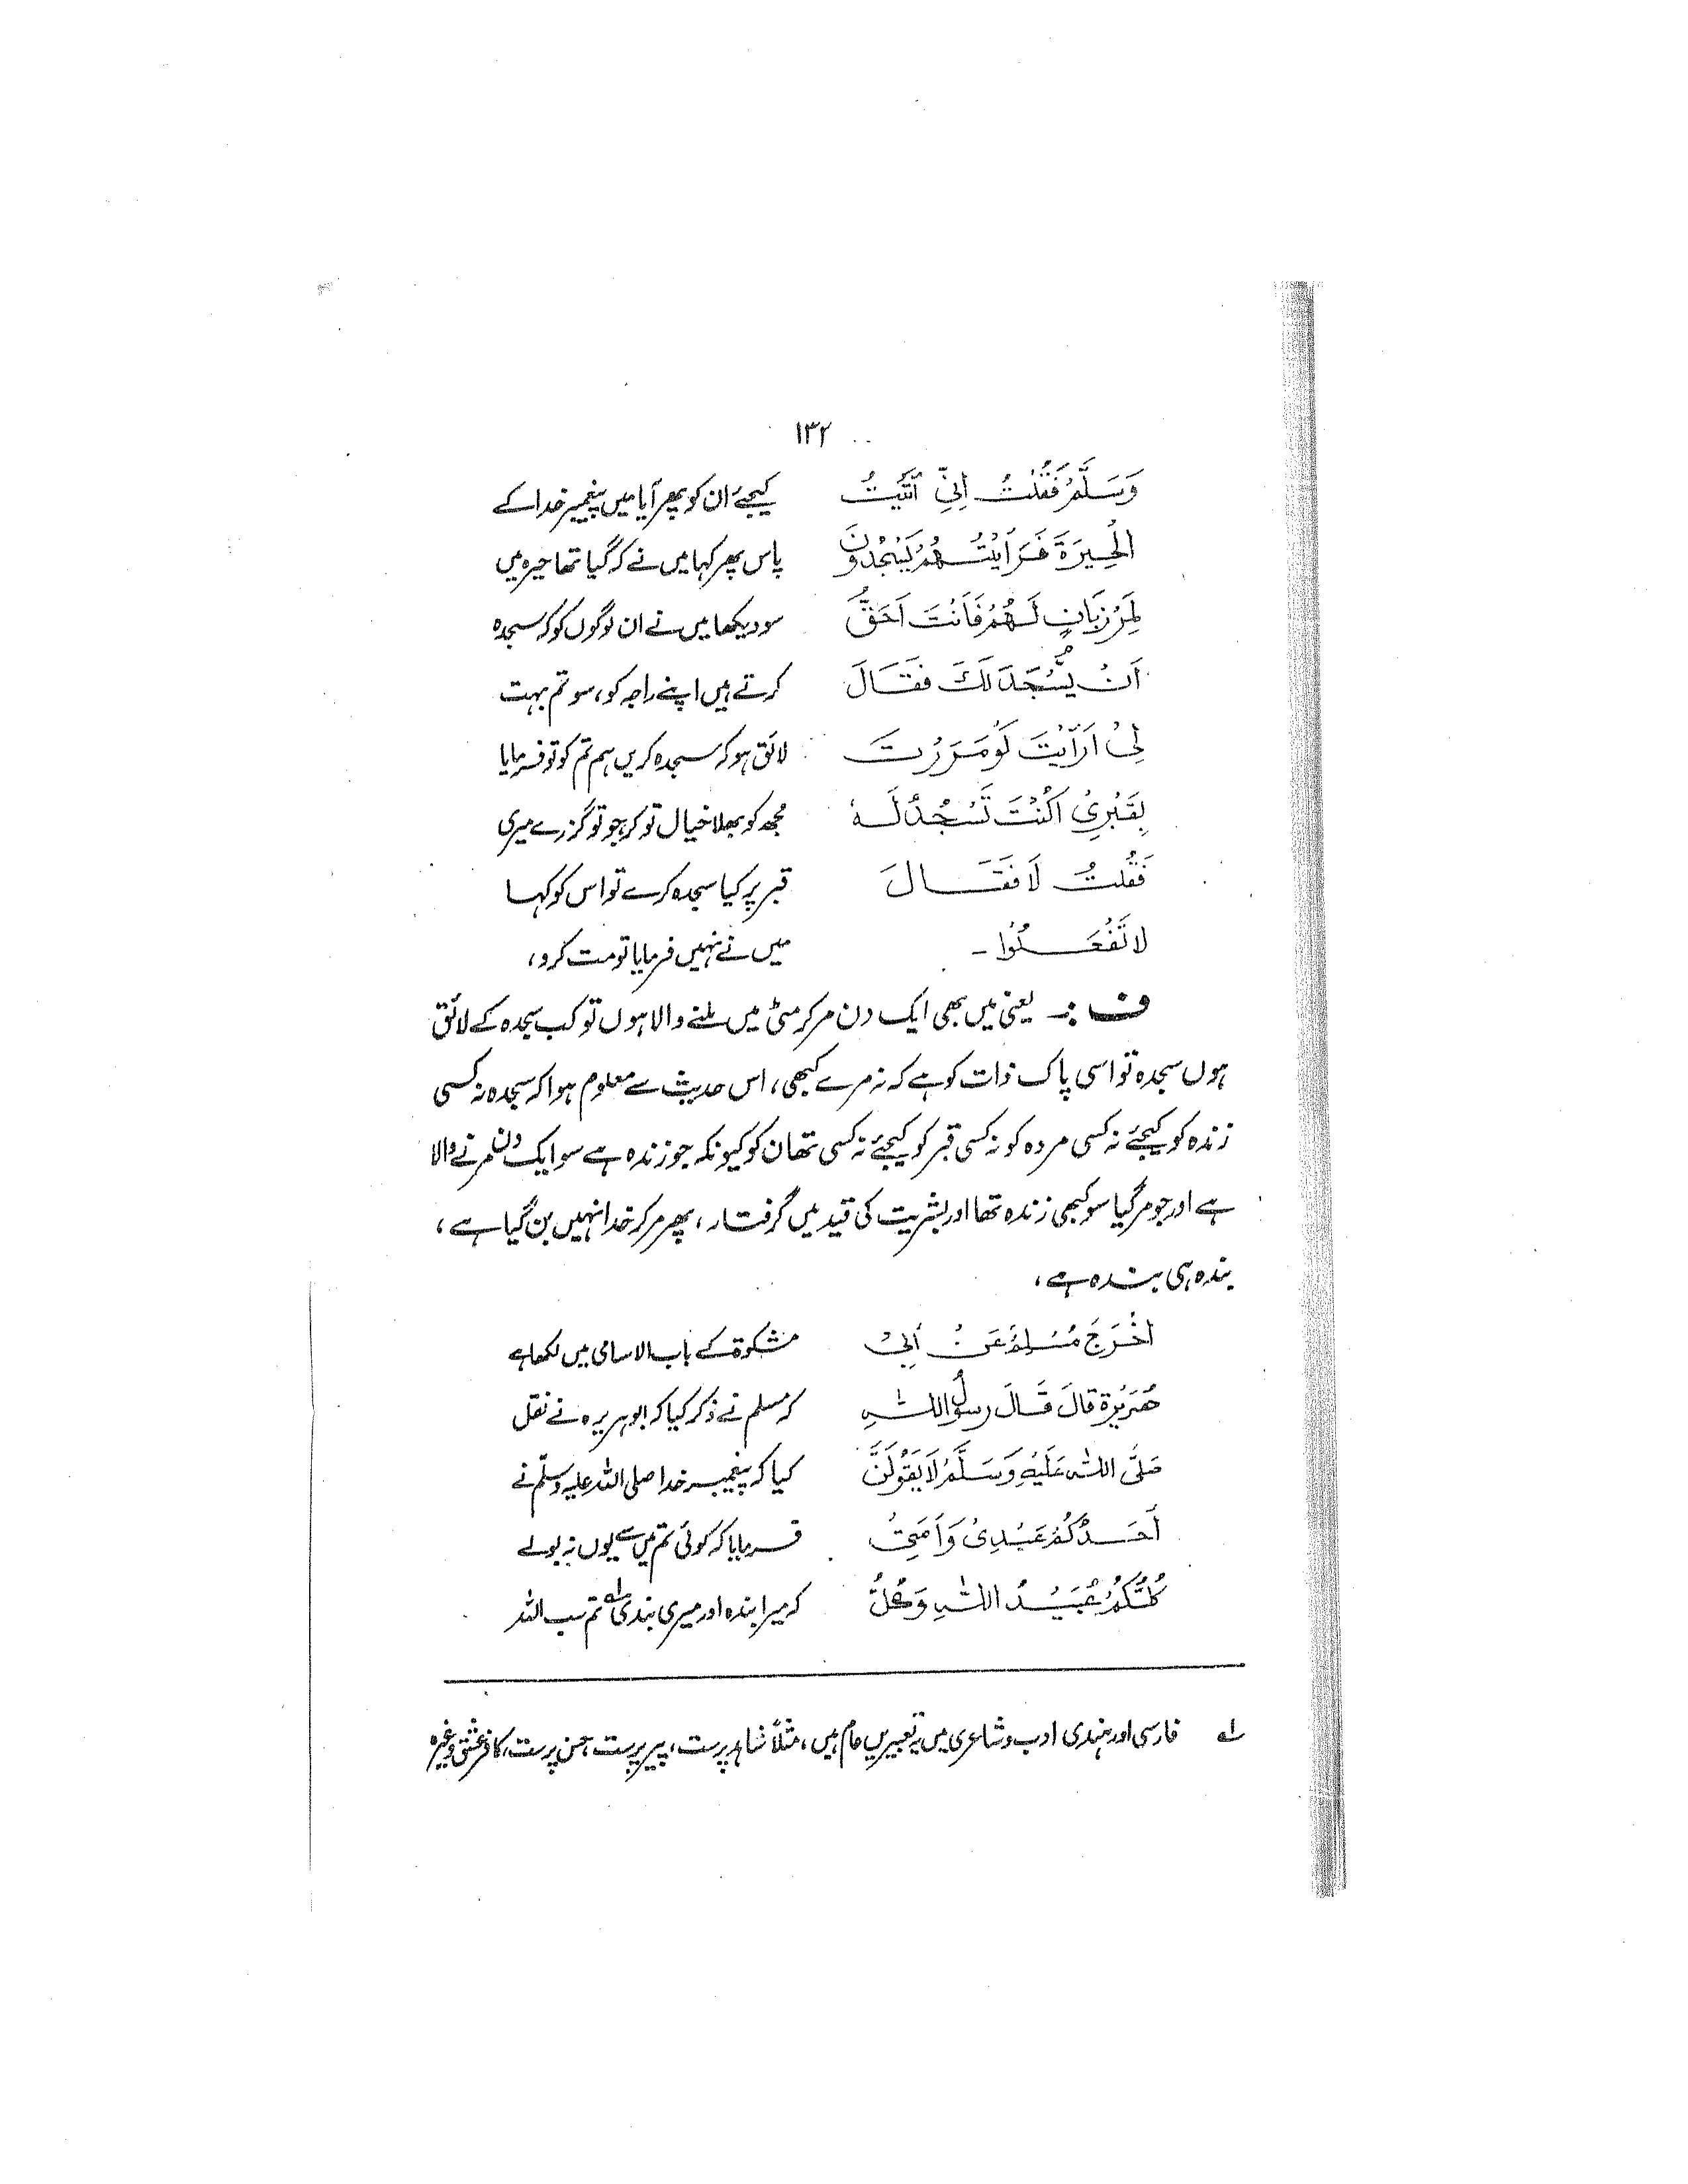 ۱۳۲
وَسَلَّمَ فَقُلْتُ اِنِّیْ اَتَیْتُ
الْحِیْرَۃَ فَرَاَیْتُھُمْ یَسْجُدُوْنَ
لِمَرْزُبَانٍ لَھُمْ فَاَنْتَ اَحَقُّ
اَنْ یُّسْجَدَ لَكَ فَقَالَ
لِیْ اَرَاَیْتَ لَوْ مَرَرْتَ
بِقَبْرِیْ اَكُنْتَ تَسْجُدُ لَہٗ
فَقُلْتُ لَا فَقَالَ
لَا تَفْعَلُوْا ۔
کیجئے ان کو پھر آیا میں پیغمبر خدا کے
پاس پھر کہا میں نے کہ گیا تھا حیرہ میں
سو دیکھا میں نے ان لوگوں کو کہ سجدہ
کرتے ہیں اپنے راجہ کو، سو تم بہت
لائق ہو کہ سجدہ کریں ہم تم کو تو فرمایا
مجھ کو بھلا خیال تو کر جو تو گزرے میری
قبر پر کیا سجدہ کرے تو اس کو کہا
میں نے نہیں فرمایا تو مت کرو،
ف :۔ یعنی میں بھی ایک دن مر کر مٹی میں ملنے والا ہوں تو کب سجدہ کے لائق
ہوں سجدہ تو اسی پاک ذات کو ہے کہ نہ مرے کبھی، اس حدیث سے معلوم ہوا کہ سجدہ نہ کسی
زندہ کو کیجئے نہ کسی مردہ کو نہ کسی قبر کو کیجئے نہ کسی تھان کو کیونکہ جو زندہ ہے سو ایک دن مرنے والا
ہے اور جو مر گیا سو کبھی زندہ تھا اور بشریت کی قید میں گرفتار، پھر مر کر خدا نہیں بن گیا ہے،
بندہ ہی بندہ ہے،
اَخْرَجَ مُسْلِمٌ عَنْ اَبِیْ
ھُرَیْرَۃَ قَالَ قَالَ رَسُوْلُ اللہِ
صَلَّی اللہُ عَلَیْہِ وَسَلَّمَ لَا یَقُوْلَنَّ
اَحَدُكُمْ عَبْدِیْ وَاَمَتِیْ
كُلُّكُمْ عَبِیْدُ اللہِ وَكُلُّ
مشکوٰۃ کے باب الاسامی میں لکھا ہے
کہ مسلم نے ذکر کیا کہ ابو ہریرہ نے نقل
کیا کہ پیغمبر خدا صلی اللہ علیہ وسلّم نے
فرمایا کہ کوئی تم میں سے یوں نہ بولے
کہ میرا بندہ اور میری بندی ؎۱ تم سب اللہ
؎۱ فارسی اور ہندی ادب و شاعری میں یہ تعبیریں عام ہیں، مثلاً شاہد پرست، پیر پرست، حسن پرست، کافر عشق وغیرہ